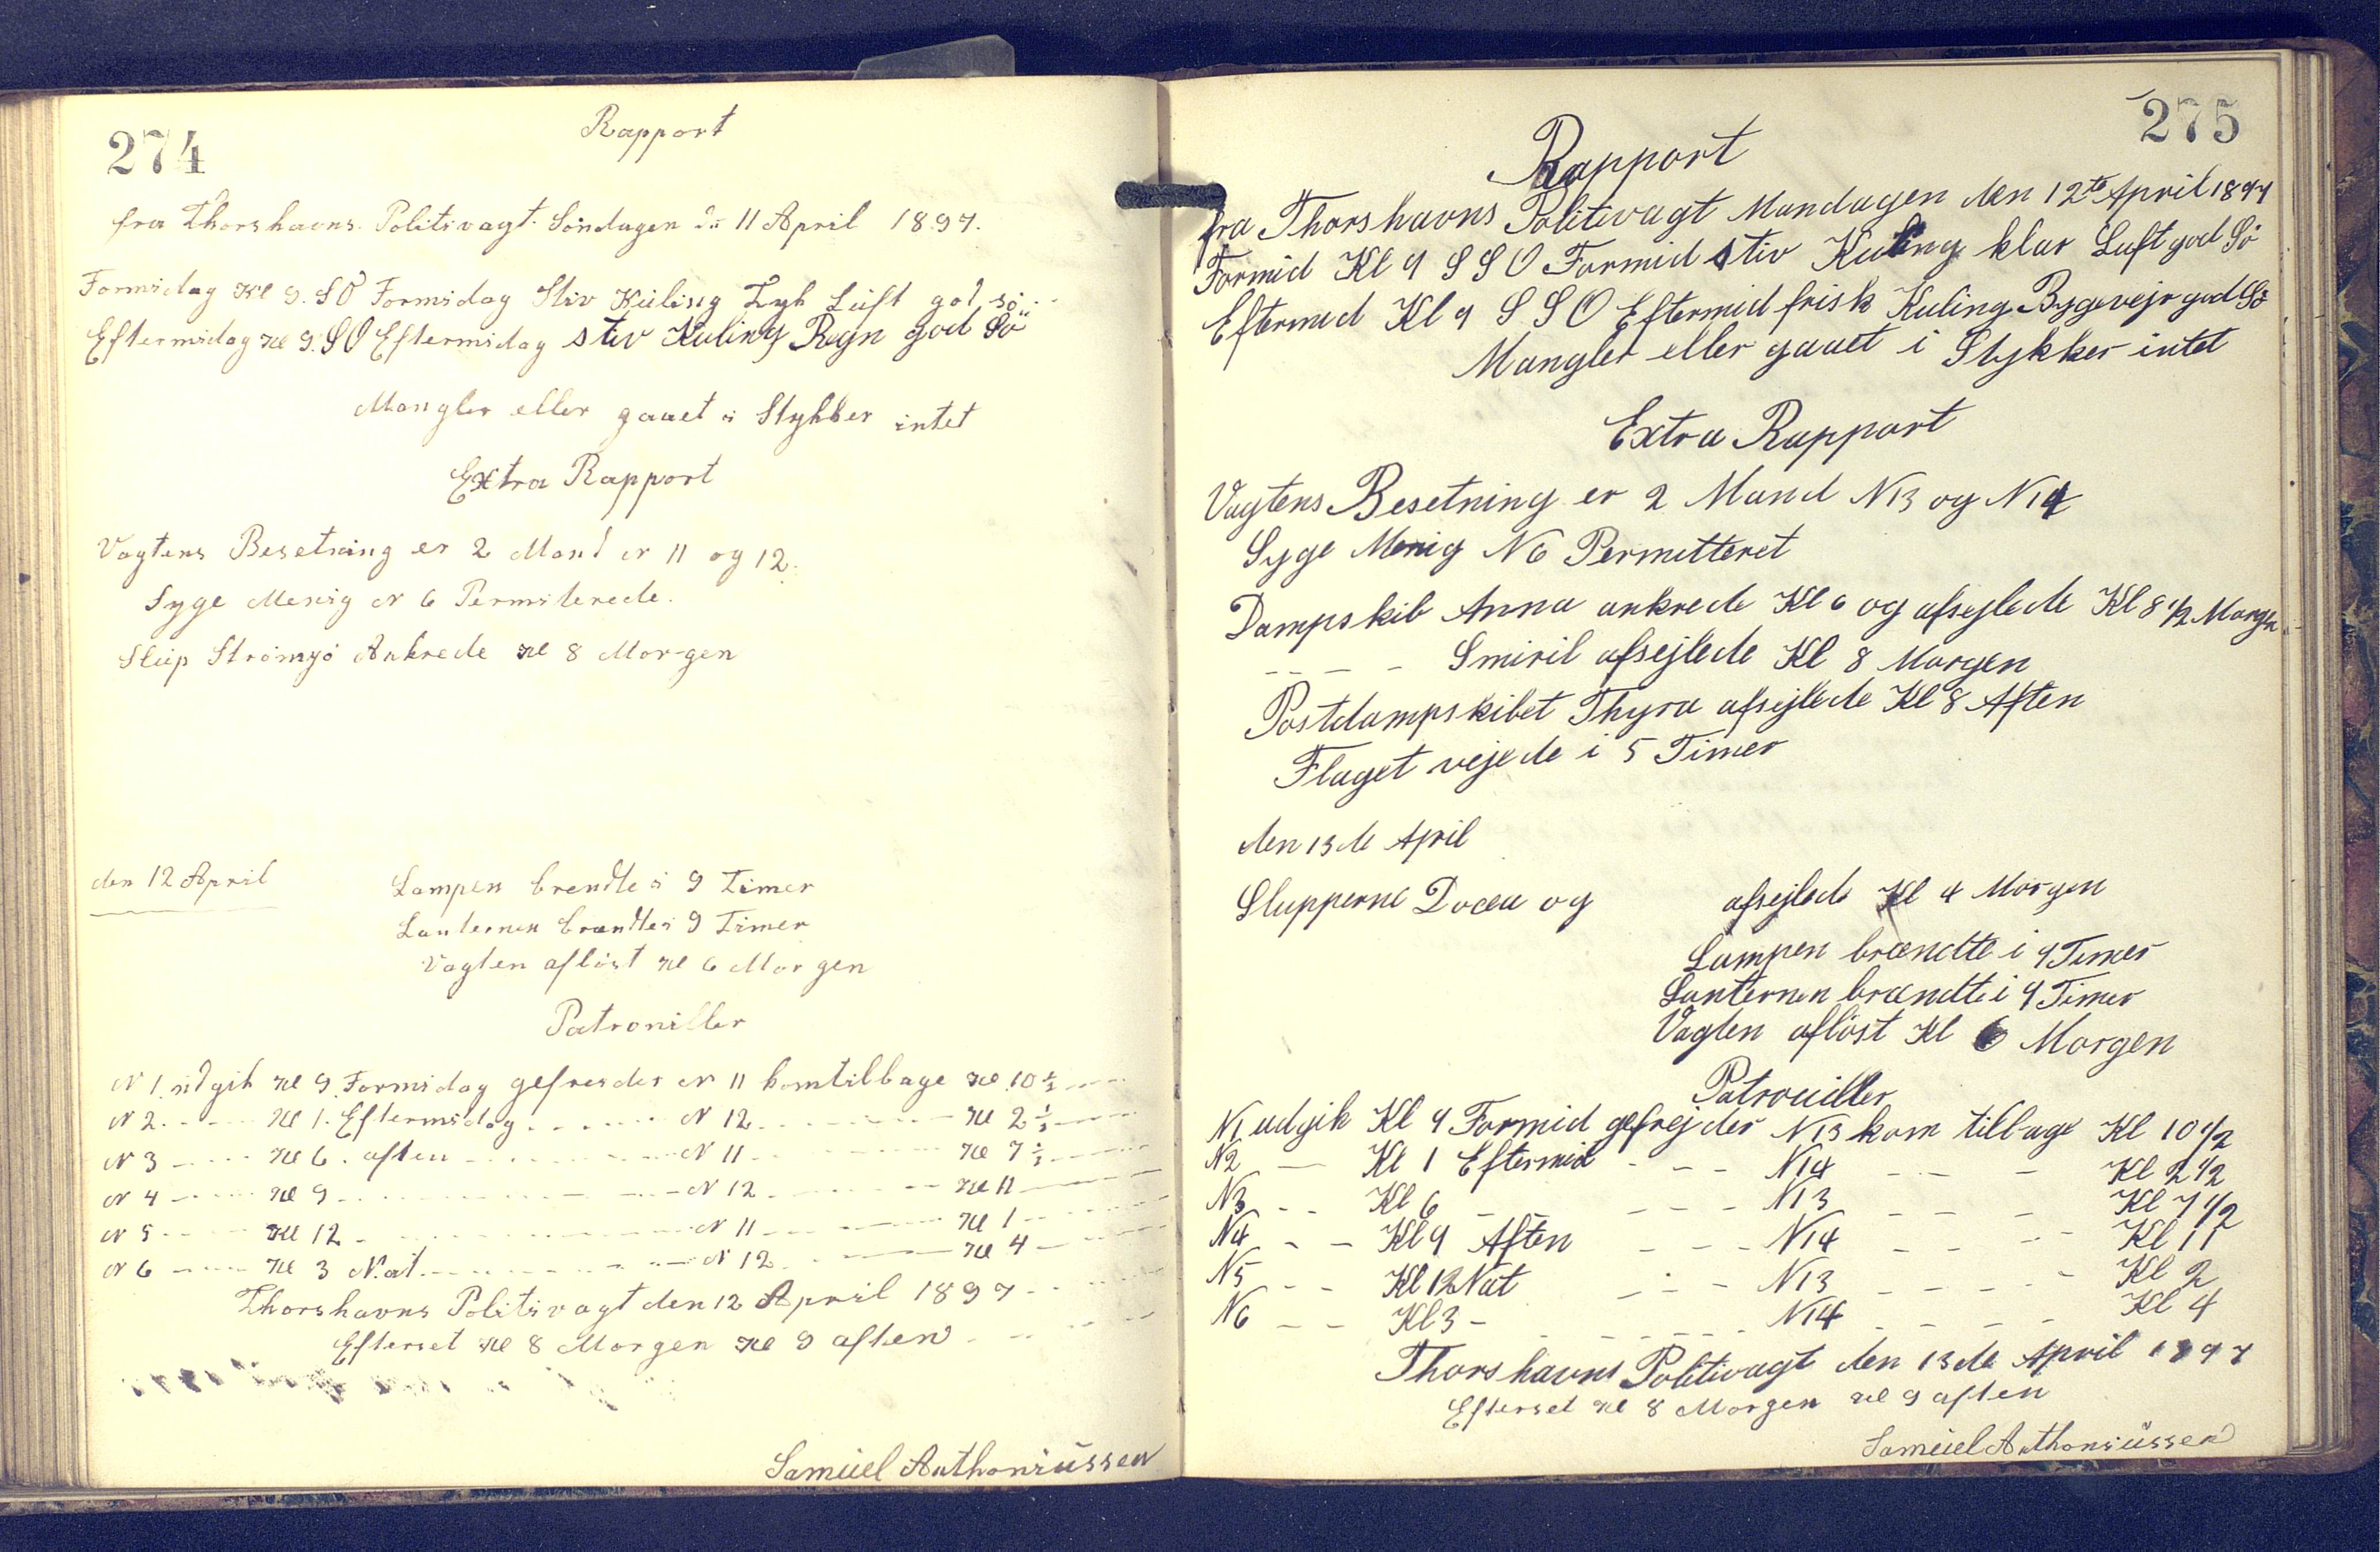 274
Rapport
fra Thorshavns Politivagt Söndagen d: 11 April 1897.
Formidag Kl 9. SO Formidag Stiv Küling Tyk Lüft god sö
Eftermidag Kl 9. SO Eftermidag stiv Kuling Regn god Sö
Mangler eller gaaet i Stykker intet
Extra Rapport
Vagtens Besetning er 2 Mand N 11 og 12.
Syge Menig N 6 Permiterede.
Slüp Strömyö Ankrede Kl 8 Morgen
den 12 April
Lampen brendte i 9 Timer
Lanternen brændte i 9 Timer
Vagten aflöst Kl 6 Morgen
Patroniller
N 1. üdgik Kl 9. Formidag gefreider N 11 komtilbage Kl 10 ½
N 2. Kl 1. Eftermidag N 12 Kl 2 ½
N 3 Kl 6. aften N 11 Kl 7 ½
N 4 Kl 9 N 12 Kl 11
N 5 Kl 12 N 11 Kl 1
N 6 Kl 3 Nat N 12 Kl 4
Thorshavns Politivagt den 12 April 1897
Efterset Kl 8 Morgen Kl 9 aften
Samüel Anthoniüssen
275
Rapport
fra Thorshavns Politivagt Mandagen den 12te April 1897
Formid Kl 9 S S O Formid stiv Kuling klar Luft god Sö
Eftermid Kl 9 S S O Eftermid frisk Kuling Bygevejr god Sö
Mangler eller gaaet i Stykker intet
Extra Rapport
Vagtens Besetning er 2 Mand N13 og N14
Syge Menig N6 Permitteret
Dampskib Anna ankrede Kl 6 og afsejlede Kl 8 1/2 Morgn
- - - - Smiril afsejlede Kl 8 Morgen
Postdampskibet Thyra afsejlede Kl 8 Aften
Flaget vejede i 5 Timer
den 13de April
Slupperne og afsejlede Kl 4 Morgen
Lampen brændte i 9 Timer
Lanternen brændte i 9 Timer
Vagten aflöst Kl 6 Morgen
Patrouiller
N1 udgik Kl 9 Formid gefrejder N13 kom tilbage Kl 10 1/2
N2 Kl 1 Eftermid N14 Kl 2 1/2
N3 Kl 6 N13 Kl 7 1/2
N4 Kl 9 Aften N14 Kl 11
N5 Kl 12 Nat N13 Kl 2
N6 Kl 3 N14 Kl 4
Thorshavns Politivagt den 13de April 1897
Efterset Kl 8 Morgen Kl 9 aften
Samüel Anthoniüssen